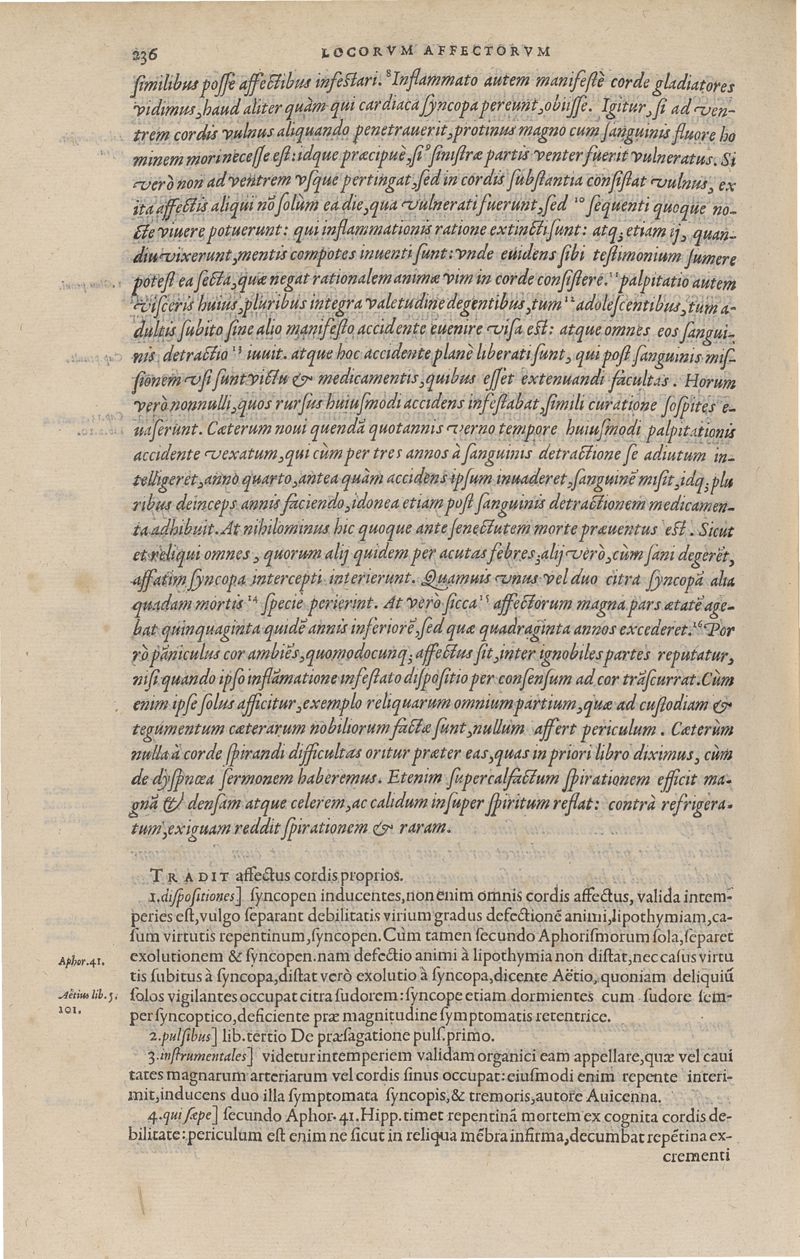 236 LOCORVM AFFECTORVM
ſimilibus poſſe affectibus infeſtari. ⁸Inflammato autem manifeſtè corde gladiatores
vidimus, haud aliter quàm qui cardiaca ſyncopa pereunt, obijſſe. Igitur, ſi ad ven-
trem cordis vulnus aliquando penetrauerit, protinus magno cum ſanguinis fluore ho
minem mori neceſſe eſt: idque præcipuè, ſi ⁹ſiniſtræ partis venter fuerit vulneratus. Si
verò non ad ventrem vſque pertingat, ſed in cordis ſubſtantia conſiſtat vulnus, ex
ita affectis aliqui nõ ſolùm ea die, qua vulnerati fuerunt, ſed ¹⁰ ſequenti quoque no-
cte viuere potuerunt: qui inflammationis ratione extincti ſunt: atq; etiam ij, quan-
diu vixerunt, mentis compotes inuenti ſunt: vnde euidens ſibi teſtimonium ſumere
poteſt ea ſecta, quæ negat rationalem animæ vim in corde conſiſtere. ¹¹palpitatio autem
viſceris huius, pluribus integra valetudine degentibus, tum ¹² adoleſcentibus, tum a-
dultis ſubito ſine alio manifeſto accidente euenire viſa eſt: atque omnes eos ſangui-
nis detractio ¹³ iuuit. atque hoc accidente planè liberati ſunt, qui poſt ſanguinis miſ-
ſionem vſi ſunt victu & medicamentis, quibus eſſet extenuandi facultas. Horum
verò nonnulli, quos rurſus huiuſmodi accidens infeſtabat, ſimili curatione ſoſpites e-
uaſerunt. Cæterum noui quendã quotannis verno tempore huiuſmodi palpitationis
accidente vexatum, qui cùm per tres annos à ſanguinis detractione ſe adiutum in-
telligeret, anno quarto, antea quàm accidens ipſum inuaderet, ſanguinẽ miſit, idq; plu
ribus deinceps annis faciendo, idonea etiam poſt ſanguinis detractionem medicamen-
ta adhibuit. At nihilominus hic quoque ante ſenectutem morte præuentus eſt. Sicut
et reliqui omnes, quorum alij quidem per acutas febres, alij verò, cùm ſani degerẽt,
affatim ſyncopa intercepti interierunt. Quamuis vnus vel duo citra ſyncopã alia
quadam mortis ¹⁴ ſpecie perierint. At verò ſicca ¹⁵ affectorum magna pars ætatẽ age-
bat quinquaginta quidẽ annis inferiorẽ, ſed quæ quadraginta annos excederet. ¹⁶Por
rò pãniculus cor ambiẽs, quomodocunq; affectus ſit, inter ignobiles partes reputatur,
niſi quando ipſo inflãmatione infeſtato diſpoſitio per conſenſum ad cor trãſcurrat. Cùm
enim ipſe ſolus afficitur, exemplo reliquarum omnium partium, quæ ad cuſtodiam &
tegumentum cæterarum nobiliorum factæ ſunt, nullum affert periculum. Cæterùm
nulla à corde ſpirandi difficultas oritur præter eas, quas in priori libro diximus, cùm
de dyſpnœa ſermonem haberemus. Etenim ſupercalfactum ſpirationem efficit ma-
gnã & denſam atque celerem, ac calidum inſuper ſpiritum reflat: contrà refrigera-
tum, exiguam reddit ſpirationem & raram.
TRADIT affectus cordis proprios.
1. diſpoſitiones] ſyncopen inducentes, non enim omnis cordis affectus, valida intem-
peries eſt, vulgo ſeparant debilitatis virium gradus defectionẽ animi, lipothymiam, ca-
ſum virtutis repentinum, ſyncopen. Cùm tamen ſecundo Aphoriſmorum ſola, ſeparet
Aphor. 41. exolutionem & ſyncopen. nam defectio animi à lipothymia non diſtat, nec caſus virtu
tis ſubitus à ſyncopa, diſtat verò exolutio à ſyncopa, dicente Aëtio, quoniam deliquiũ
Aëtius lib. 5. ſolos vigilantes occupat citra ſudorem: ſyncope etiam dormientes cum ſudore ſem-
101. per ſyncoptico, deficiente præ magnitudine ſymptomatis retentrice.
2. pulſibus] lib. tertio De præſagatione pulſ. primo.
3. inſtrumentales] videtur intemperiem validam organici eam appellare, quæ vel caui
tates magnarum arteriarum vel cordis ſinus occupat: eiuſmodi enim repente interi-
mit, inducens duo illa ſymptomata ſyncopis, & tremoris, autore Auicenna.
4. qui ſæpe] ſecundo Aphor. 41. Hipp. timet repentinã mortem ex cognita cordis de-
bilitate: periculum eſt enim ne ſicut in reliqua mẽbra infirma, decumbat repẽtina ex-
crementi